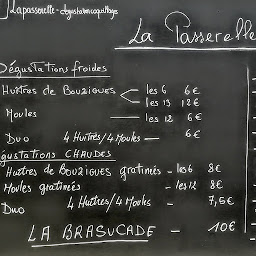 Lapasserelle - degustationcoquillages
La Passerelle
Dégustations froides
Huîtres de Bouzigues
les 6 6€
les 13 12€
Moules les 12 6€
Duo 4 Huîtres/4 Moules — 6€
gustations CHAUDES
Huîtres de BOUZIGUES gratinées - les 6 8€
Moules gratinées - les 12 8€
Duo 4 Huîtres/4 Moules - 7,5€
LA BRASUCADE - 10€